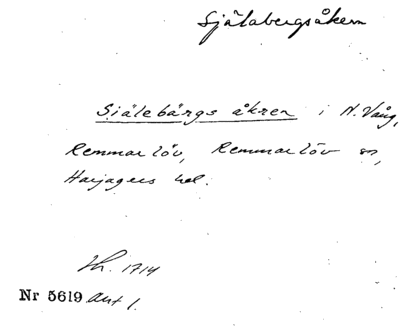 Själabergsåkern
Siälebärgs åkrer i N. Vång,
Remmarlöv, Remmarlöv sn,
Harjagers hd.
Lh. 1714
Nr 5619 Akt 1.